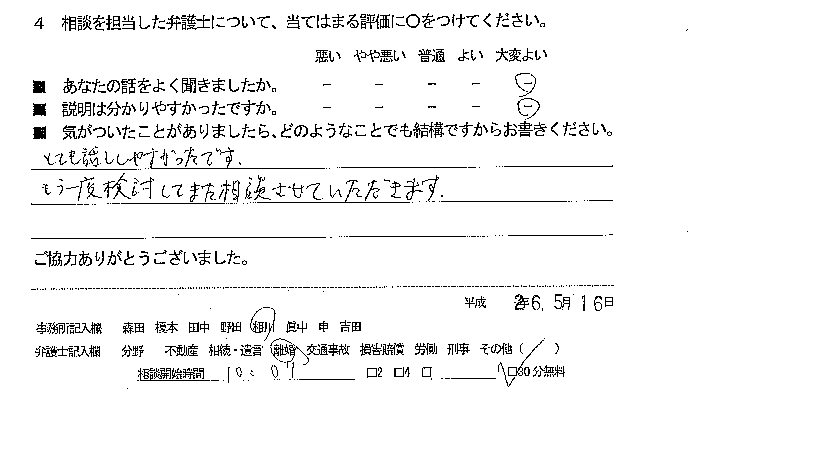 4 相談を担当した弁護士について、当てはまる評価に〇をつけてください。
悪い やや悪い 普通 よい 大変よい
■ あなたの話をよく聞きましたか。 － － － － －
■ 説明は分かりやすかったですか。 － － － － －
■ 気がついたことがありましたら、どのようなことでも結構ですからお書きください。
とても話ししやすかったです.
もう一度検討してまた相談させていただきます.
ご協力ありがとうございました。
平成 26. 5月 16日
事務所記入欄 森田 榎本 田中 野田 相川 眞中 申 吉田
弁護士記入欄 分野 不動産 相続・遺言 離婚 交通事故 損害賠償 労働 刑事 その他 ( )
相談開始時間 10:01 □2 □4 □ □30分無料